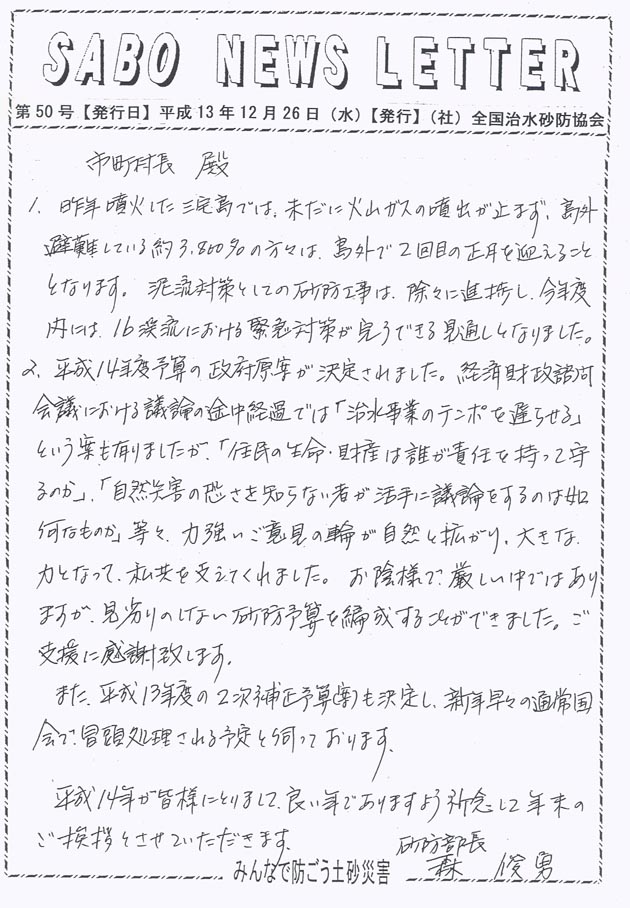 SABO NEWS LETTER
第50号【発行日】平成13年12月26日（水）【発行】（社）全国治水砂防協会
市町村長 殿
1. 昨年噴火した三宅島では、未だに火山ガスの噴出が止まず、島外
避難している約3,800名の方々は、島外で2回目の正月を迎えること
となります。泥流対策としての砂防工事は、除々に進捗し、今年度
内には、16渓流における緊急対策が完了できる見通しとなりました。
2. 平成14年度予算の政府原案が決定されました。経済財政諮問
会議における議論の途中経過では「治水事業のテンポを遅らせる」
という案も有りましたが、「住民の生命・財産は誰が責任を持って守
るのか」、「自然災害の恐さを知らない者が派手に議論をするのは如
何なものか」等々、力強いご意見の輪が自然と拡がり、大きな
力となって、私共を支えてくれました。お陰様で、厳しい中ではあり
ますが、見劣りのしない砂防予算を編成することができました。ご
支援に感謝致します。
また、平成13年度の2次補正予算(案)も決定し、新年早々の通常国
会で、冒頭処理される予定と伺っております。
平成14年が皆様にとりまして、良い年でありますよう祈念して年末の
ご挨拶とさせていただきます。
砂防部長
森 俊勇
みんなで防ごう土砂災害